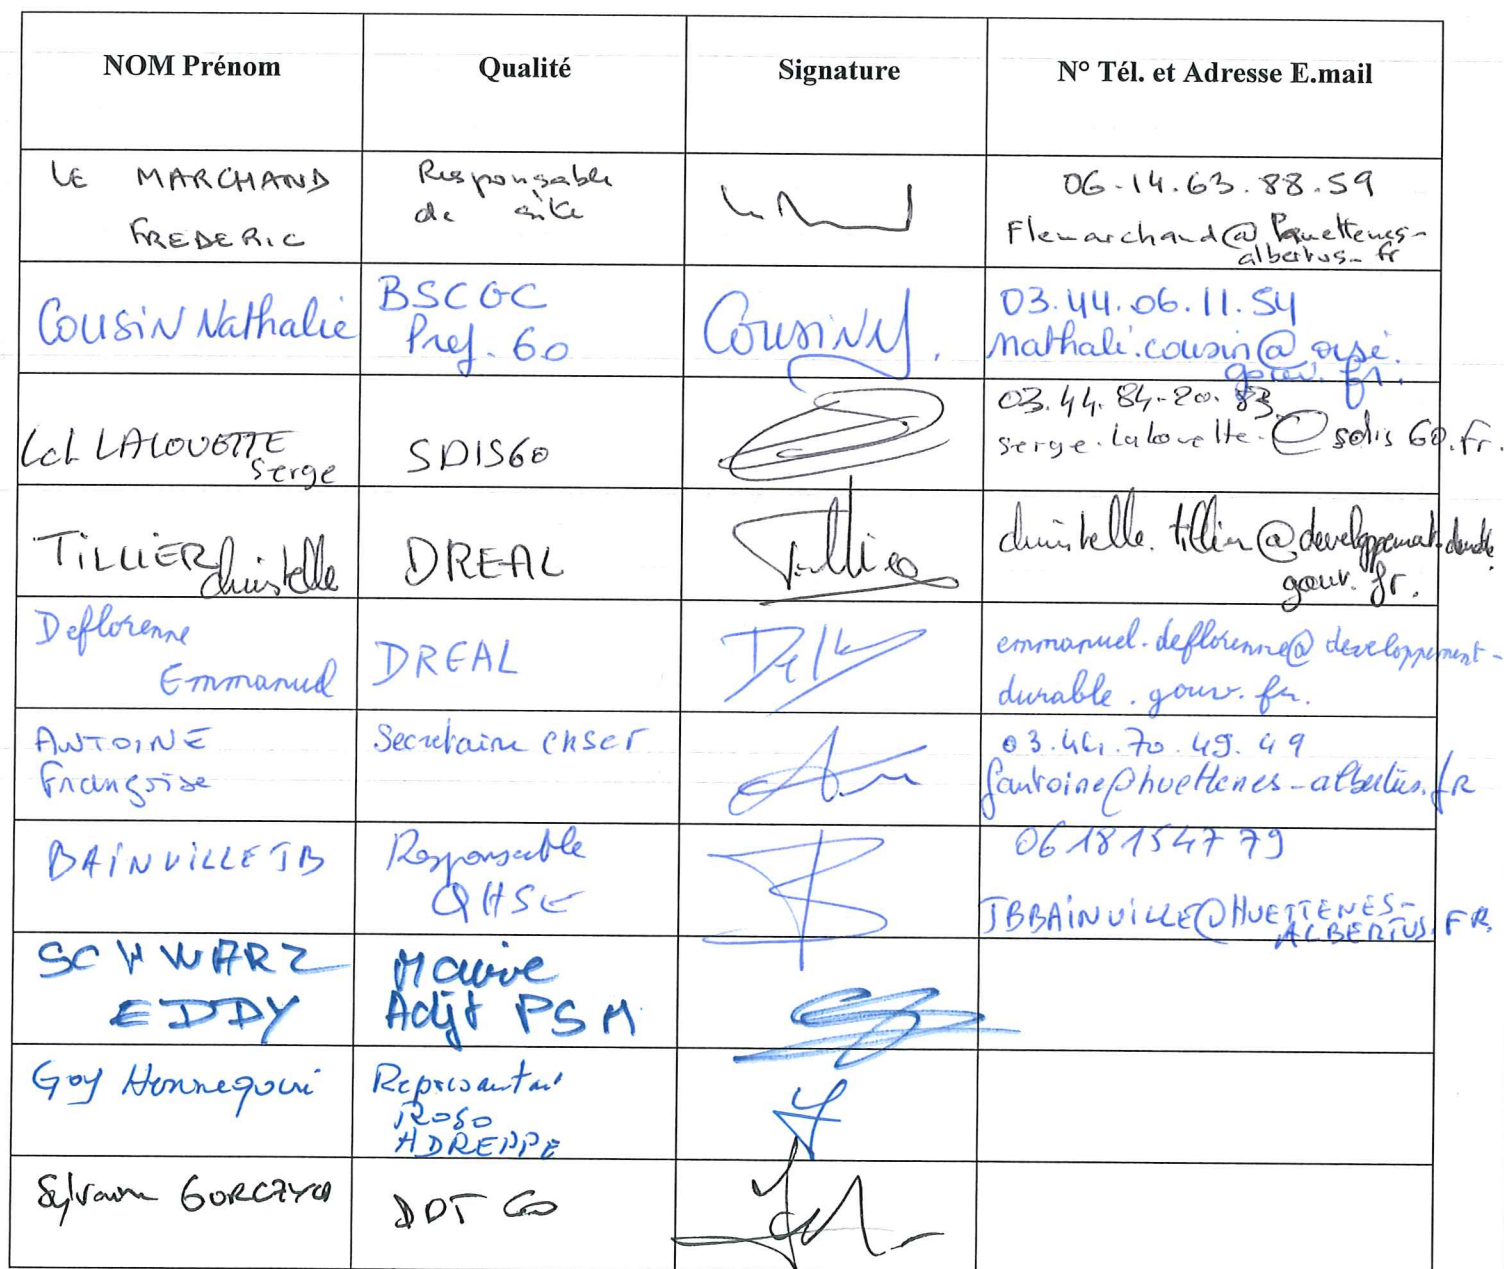 NOM Prénom
Qualité
Signature
N° Tél. et Adresse E.mail
LE MARCHAND
FREDERIC
Responsable
de site
06.14.63.88.59
Flemarchand@
albertus-fr
Cousin Nathalie
BSCGC
Pref. 60
Cousin
03.44.06.11.54
nathali.cousin@oise.
gouv.fr.
Lcl LALOUETTE
Serge
SDIS60
03.44.84-20.83
serge.lalouette.@sdis60.fr.
TILLIER
Christelle
DREAL
Tillier
christelle.tillier@developpement.durable
gouv.fr.
Deflorenne
Emmanuel
DREAL
emmanuel.deflorenne@developpement-
durable.gouv.fr.
ANTOINE
Françoise
Secretaire CHSCT
03.44.70.49.49
fantoine@huettenes-albertus.fR
BAINVILLE JB
Responsable
QHSE
06 18 15 47 79
JBBAINVILLE@HUETTENES-
ALBERTUS.FR
SCHWARZ
EDDY
Mairie
Adjt PSM
Guy Hennequin
Représentant
ROSO
Sylvain GORCZYCA
DDT 60